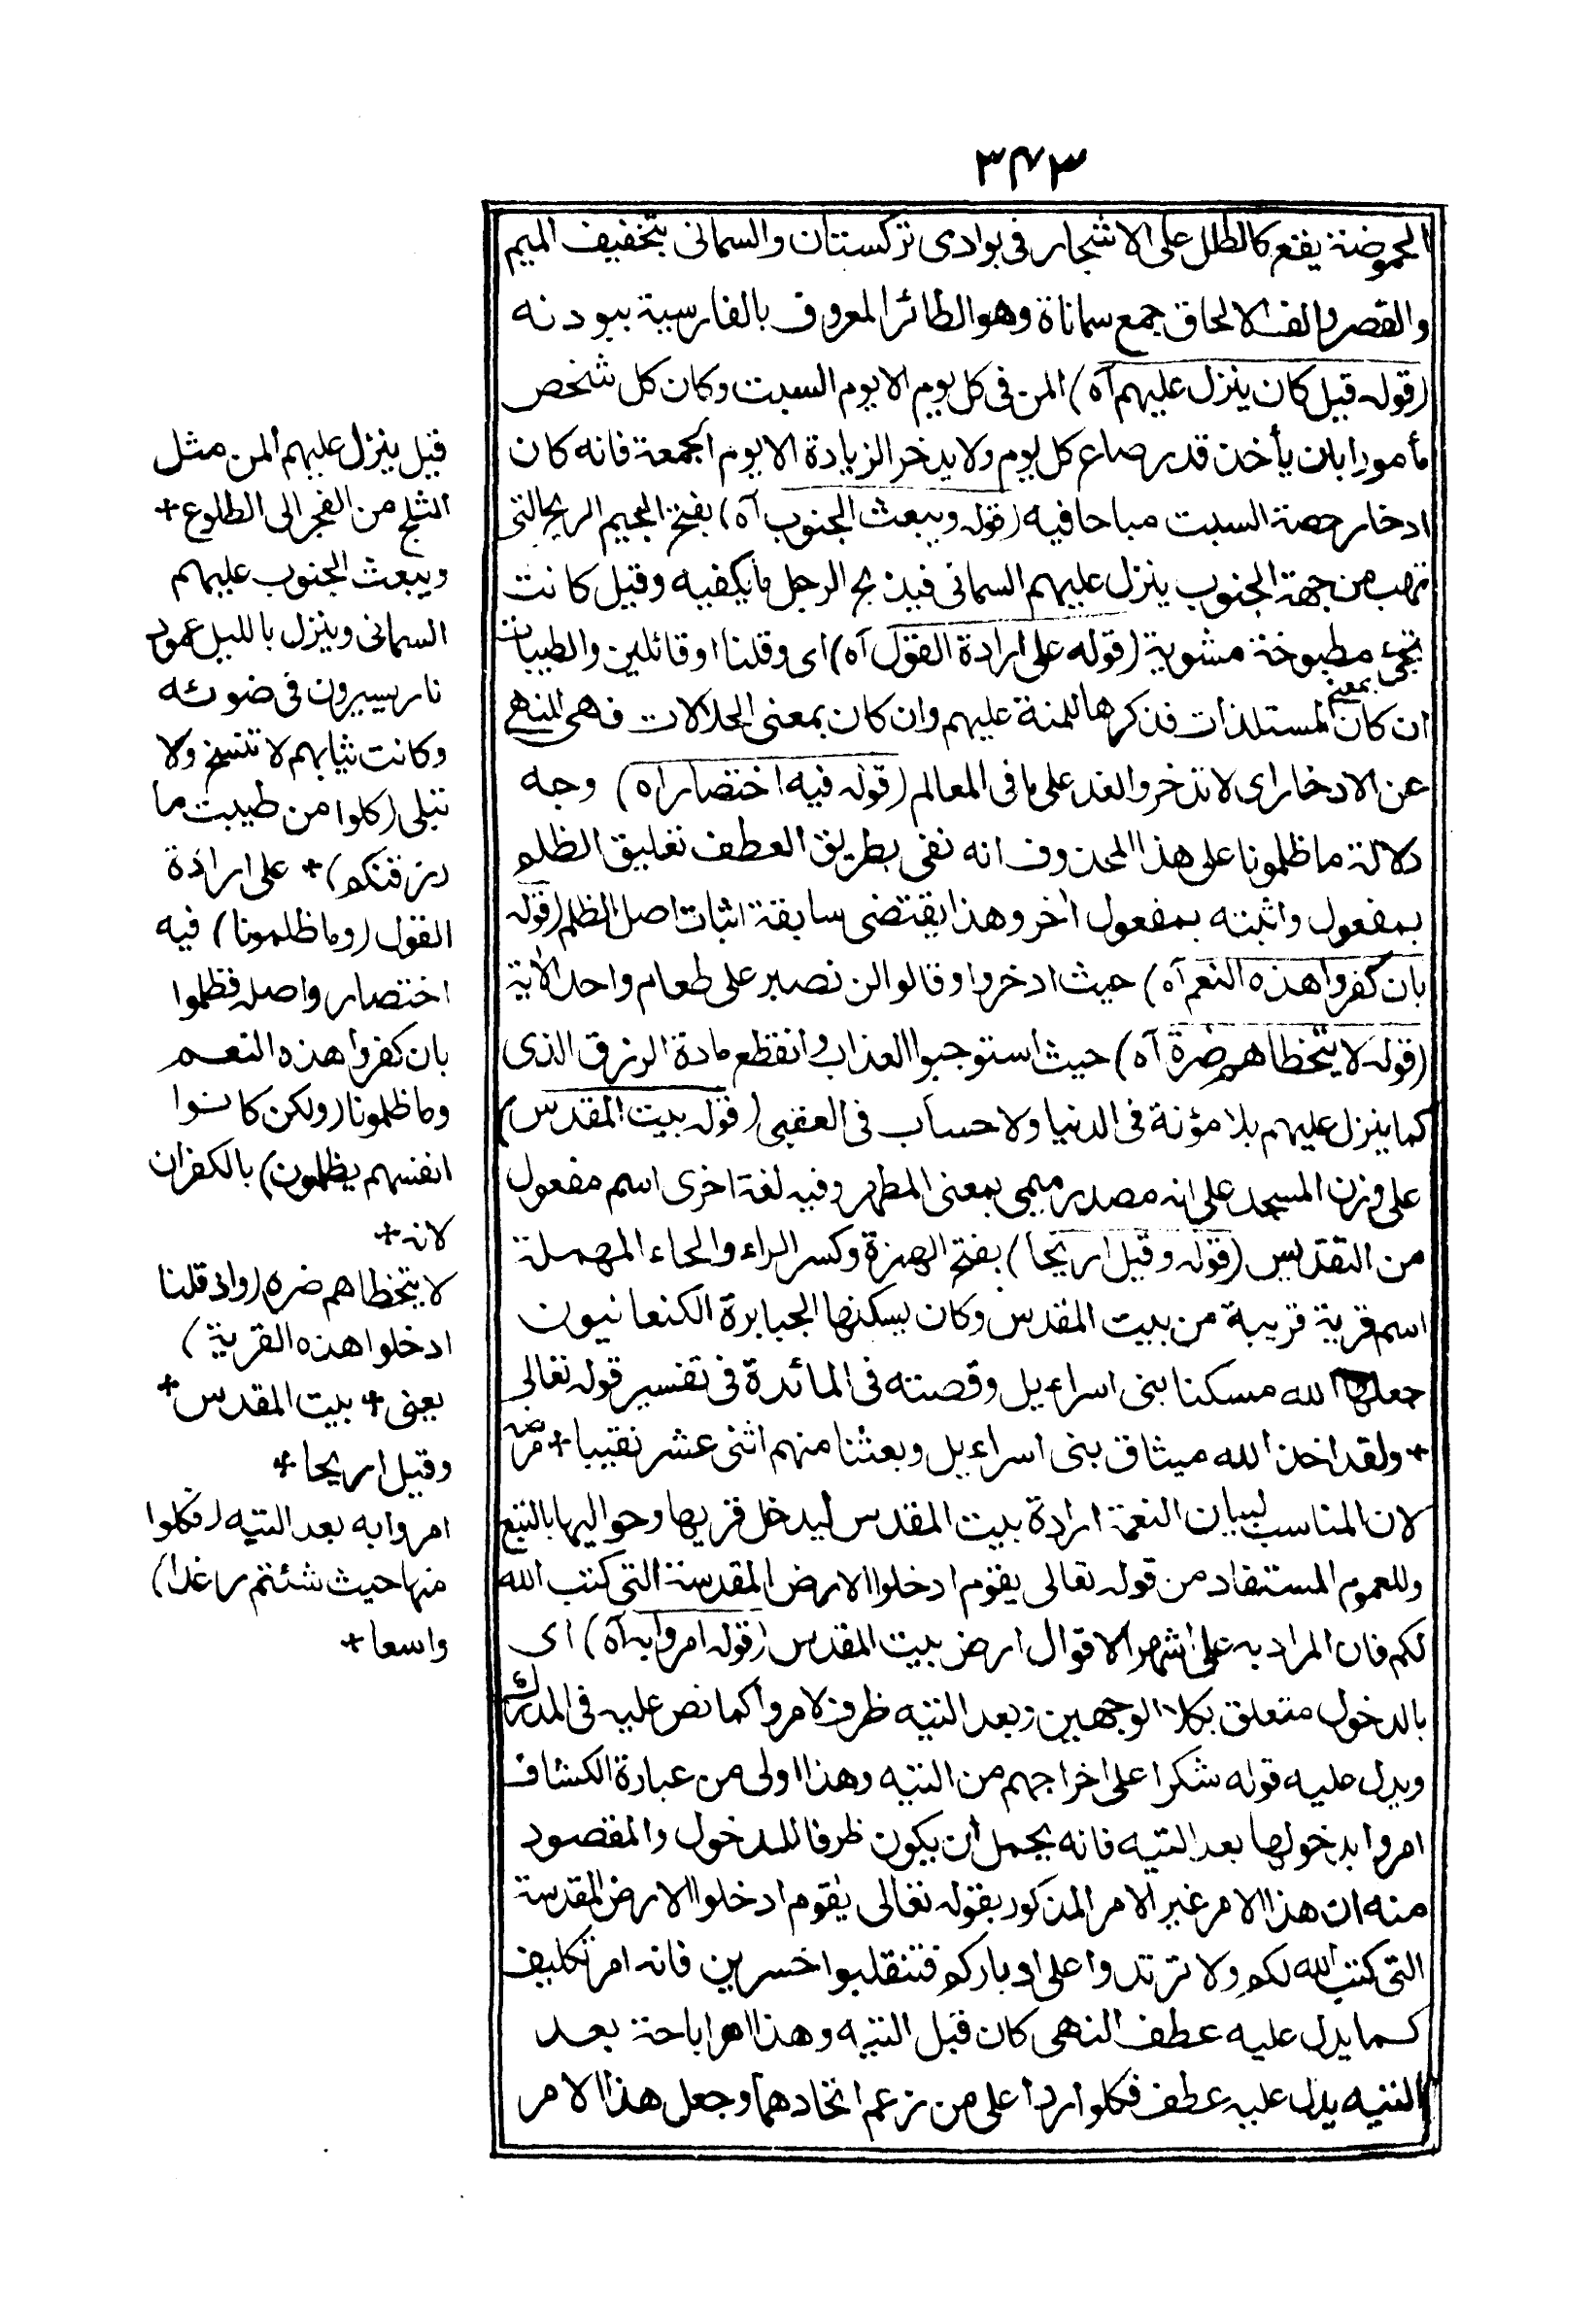 ٣٤٣
الحموضة يقع كالطل على الاشجار فى بوادى تركستان والسمانى بتخفيف الميم
والقصر والف الالحاق جمع سماناة وهو الطائر المعروف بالفارسية ببودنه
(قوله قيل كان ينزل عليهم آه) المن فى كل يوم الا يوم السبت وكان كل شخص
مأمورا بان يأخذ قدر صاع كل يوم ولا يدخر الزيادة الا يوم الجمعة فانه كان
ادخار حصة السبت مباحا فيه (قوله ويبعث الجنوب آه) بفتح الجيم الريح التى
تهب من جهة الجنوب ينزل عليهم السمانى فيذبح الرجل ما يكفيه وقيل كانت
تجئ مطبوخة مشوية (قوله على ارادة القول آه) اى وقلنا او قائلين والطيبات
ان كان بمعنى المستلذات فذكرها للمنة عليهم وان كان بمعنى الحلالات فهى للنهى
عن الادخار اى لا تدخروا لغد على ما فى المعالم (قوله فيه اختصار اه) وجه
دلالة ما ظلمونا على هذا المحذوف انه نفى بطريق العطف تعليق الظلم
بمفعول واثبته بمفعول اخر وهذا يقتضى سابقة اثبات اصل الظلم (قوله
بان كفروا هذه النعم آه) حيث ادخروا وقالوا لن نصبر على طعام واحد الاية
(قوله لا يتخطاهم ضره آه) حيث استوجبوا العذاب وانقطع مادة الرزق الذى
كما ينزل عليهم بلا مؤنة فى الدنيا ولا حساب فى العقبى (قوله بيت المقدس)
على وزن المسجد على انه مصدر ميمى بمعنى المطهر وفيه لغة اخرى اسم مفعول
من التقديس (قوله وقيل اريحا) بفتح الهمزة وكسر الراء والحاء المهملة
اسم قرية قريبة من بيت المقدس وكان يسكنها الجبابرة الكنعانيون
جعلها الله مسكنا بنى اسراءيل وقصته فى المائدة فى تفسير قوله تعالى
+ ولقد اخذ الله ميثاق بنى اسراءيل وبعثنا منهم اثنى عشر نقيبا +
لان المناسب لبيان النعمة ارادة بيت المقدس ليدخل قريها وحواليها بالتبع
وللعموم المستفاد من قوله تعالى يقوم ادخلوا الارض المقدسة التى كتب الله
لكم فان المراد به على اشهر الاقوال ارض بيت المقدس (قوله امروا به آه) اى
بالدخول متعلق بكلا الوجهين وبعد التيه ظرف لامروا كما نص عليه فى المدارك
ويدل عليه قوله شكرا على اخراجهم من التيه وهذا اولى من عبارة الكشاف
امروا بدخولها بعد التيه فانه يحمل ان يكون ظرفا للدخول والمقصود
منه ان هذا الامر غير الامر المذكور بقوله تعالى يقوم ادخلوا الارض المقدسة
التى كتب الله لكم ولا ترتدوا على ادباركم فتنقلبوا خسرين فانه امر تكليف
كما يدل عليه عطف النهى كان قبل التيه وهذا امر اباحة بعد
التيه يدل عليه عطف فكلوا ردا على من زعم اتحادهما وجعل هذا الامر
قيل ينزل عليهم المن مثل
الثلج من الفجر الى الطلوع +
ويبعث الجنوب عليهم
السمانى وينزل بالليل عمود
نار يسيرون فى ضوئه
وكانت ثيابهم لا تتسخ ولا
تبلى (كلوا من طيبت ما
رزقنكم) + على ارادة
القول (وما ظلمونا) فيه
اختصار واصله فظلموا
بان كفروا هذه النعم
وما ظلمونا (ولكن كانوا
انفسهم يظلمون) بالكفران
لانه +
لا يتخطاهم ضره (واذ قلنا
ادخلوا هذه القرية)
يعنى + بيت المقدس +
وقيل اريحا +
امروا به بعد التيه (فكلوا
منها حيث شئتم رغدا)
واسعا +